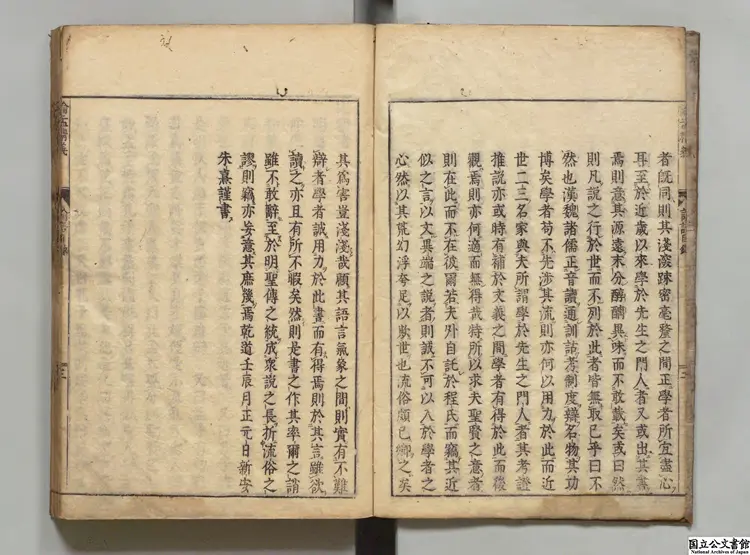 者既同則其淺深疎密毫釐之間正學者所宜盡心
耳至於近歲以來學於先生之門人者又或出其書
焉則意其源遠末分醇醨異味而不敢載矣或曰然
則凡說之行於世而不列於此者皆無取已乎曰不
然也漢魏諸儒正音讀通訓詁考制度辨名物其功
博矣學者苟不先涉其流則亦何以用力於此而近
世二三名家與夫所謂學於先生之門人者其考證
推說亦或時有補於文義之間學者有得於此而後
觀焉則亦何適而無得哉特所以求夫聖賢之意者
則在此而不在彼爾若夫外自託於程氏而竊其近
似之言以文異端之說者則誠不可以入於學者之
心然以其荒幻浮夸足以欺世也流俗頗已鄉之矣
其為害豈淺淺哉顧其語言氣象之間則實有不難
辯者學者誠用力於此書而有得焉則於其言雖欲
讀之亦且有所不暇矣然則是書之作其率爾之誚
雖不敢辭至於明聖傳之統成衆說之長折流俗之
謬則竊亦妄意其庶幾焉乾道壬辰月正元日新安
朱熹謹書
三
三
国立公文書館
National Archives of Japan